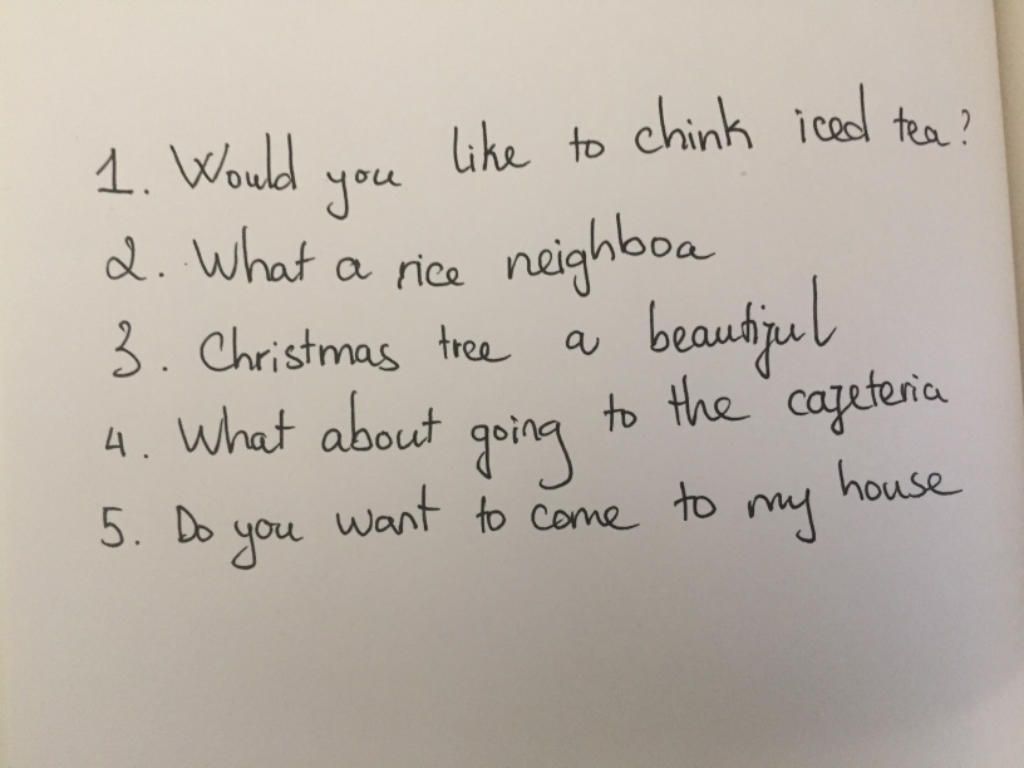 1. Would you like to chink iced tea?
2. What a rice neighboa
3. Christmas tree a beautijul
4. What about going to the cajeteria
5. Do you want to come to my house